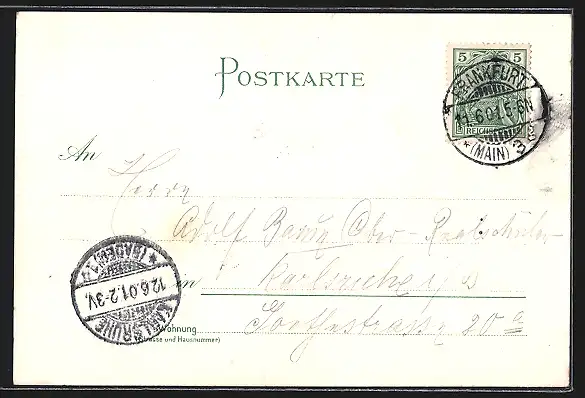 POSTKARTE
5 5
REICHSPOST
FRANKFURT
11.6.01.5-6N
* (MAIN) 3
An
Herrn
Adolf Ober-Realschüler
in Karlsruhe
Wohnung
(Strasse und Hausnummer)
Goethestrasse 20 a
KARLSRUHE
12.6.01.2-3V.
* (BADEN) 1.